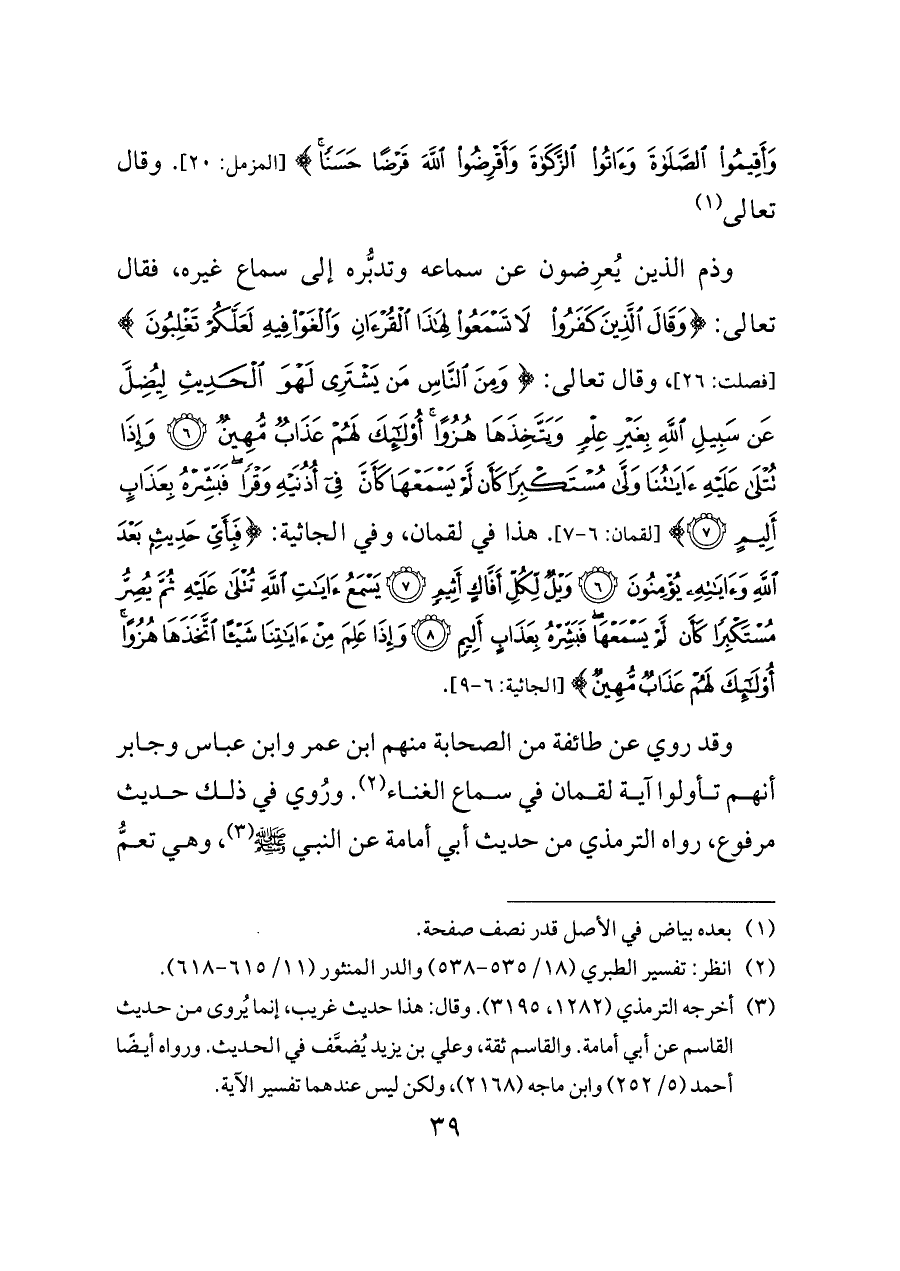 وَأَقِيمُوا۟ ٱلصَّلَوٰةَ وَءَاتُوا۟ ٱلزَّكَوٰةَ وَأَقْرِضُوا۟ ٱللَّهَ قَرْضًا حَسَنًا ۚ ﴾ [المزمل: ٢٠]. وقال
تعالى(١)
وذم الذين يُعرِضون عن سماعه وتدبُّره إلى سماع غيره، فقال
تعالى: ﴿ وَقَالَ ٱلَّذِينَ كَفَرُوا۟ لَا تَسْمَعُوا۟ لِهَٰذَا ٱلْقُرْءَانِ وَٱلْغَوْا۟ فِيهِ لَعَلَّكُمْ تَغْلِبُونَ ﴾
[فصلت: ٢٦]، وقال تعالى: ﴿ وَمِنَ ٱلنَّاسِ مَن يَشْتَرِى لَهْوَ ٱلْحَدِيثِ لِيُضِلَّ
عَن سَبِيلِ ٱللَّهِ بِغَيْرِ عِلْمٍ وَيَتَّخِذَهَا هُزُوًا ۚ أُو۟لَٰٓئِكَ لَهُمْ عَذَابٌ مُّهِينٌ ٦ وَإِذَا
تُتْلَىٰ عَلَيْهِ ءَايَٰتُنَا وَلَّىٰ مُسْتَكْبِرًا كَأَن لَّمْ يَسْمَعْهَا كَأَنَّ فِىٓ أُذُنَيْهِ وَقْرًا ۖ فَبَشِّرْهُ بِعَذَابٍ
أَلِيمٍ ٧ ﴾ [لقمان: ٦-٧]. هذا في لقمان، وفي الجاثية: ﴿ فَبِأَىِّ حَدِيثٍۭ بَعْدَ
ٱللَّهِ وَءَايَٰتِهِۦ يُؤْمِنُونَ ٦ وَيْلٌ لِّكُلِّ أَفَّاكٍ أَثِيمٍ ٧ يَسْمَعُ ءَايَٰتِ ٱللَّهِ تُتْلَىٰ عَلَيْهِ ثُمَّ يُصِرُّ
مُسْتَكْبِرًا كَأَن لَّمْ يَسْمَعْهَا ۖ فَبَشِّرْهُ بِعَذَابٍ أَلِيمٍ ٨ وَإِذَا عَلِمَ مِنْ ءَايَٰتِنَا شَيْـًٔا ٱتَّخَذَهَا هُزُوًا ۚ
أُو۟لَٰٓئِكَ لَهُمْ عَذَابٌ مُّهِينٌ ﴾ [الجاثية: ٦-٩].
وقد روي عن طائفة من الصحابة منهم ابن عمر وابن عباس وجابر
أنهم تأولوا آية لقمان في سماع الغناء(٢). ورُوي في ذلك حديث
مرفوع، رواه الترمذي من حديث أبي أمامة عن النبي ﷺ(٣)، وهي تعمُّ
(١) بعده بياض في الأصل قدر نصف صفحة.
(٢) انظر: تفسير الطبري (١٨/ ٥٣٥-٥٣٨) والدر المنثور (١١/ ٦١٥-٦١٨).
(٣) أخرجه الترمذي (١٢٨٢، ٣١٩٥). وقال: هذا حديث غريب، إنما يُروى من حديث
القاسم عن أبي أمامة. والقاسم ثقة، وعلي بن يزيد يُضعَّف في الحديث. ورواه أيضًا
أحمد (٥/ ٢٥٢) وابن ماجه (٢١٦٨)، ولكن ليس عندهما تفسير الآية.
٣٩